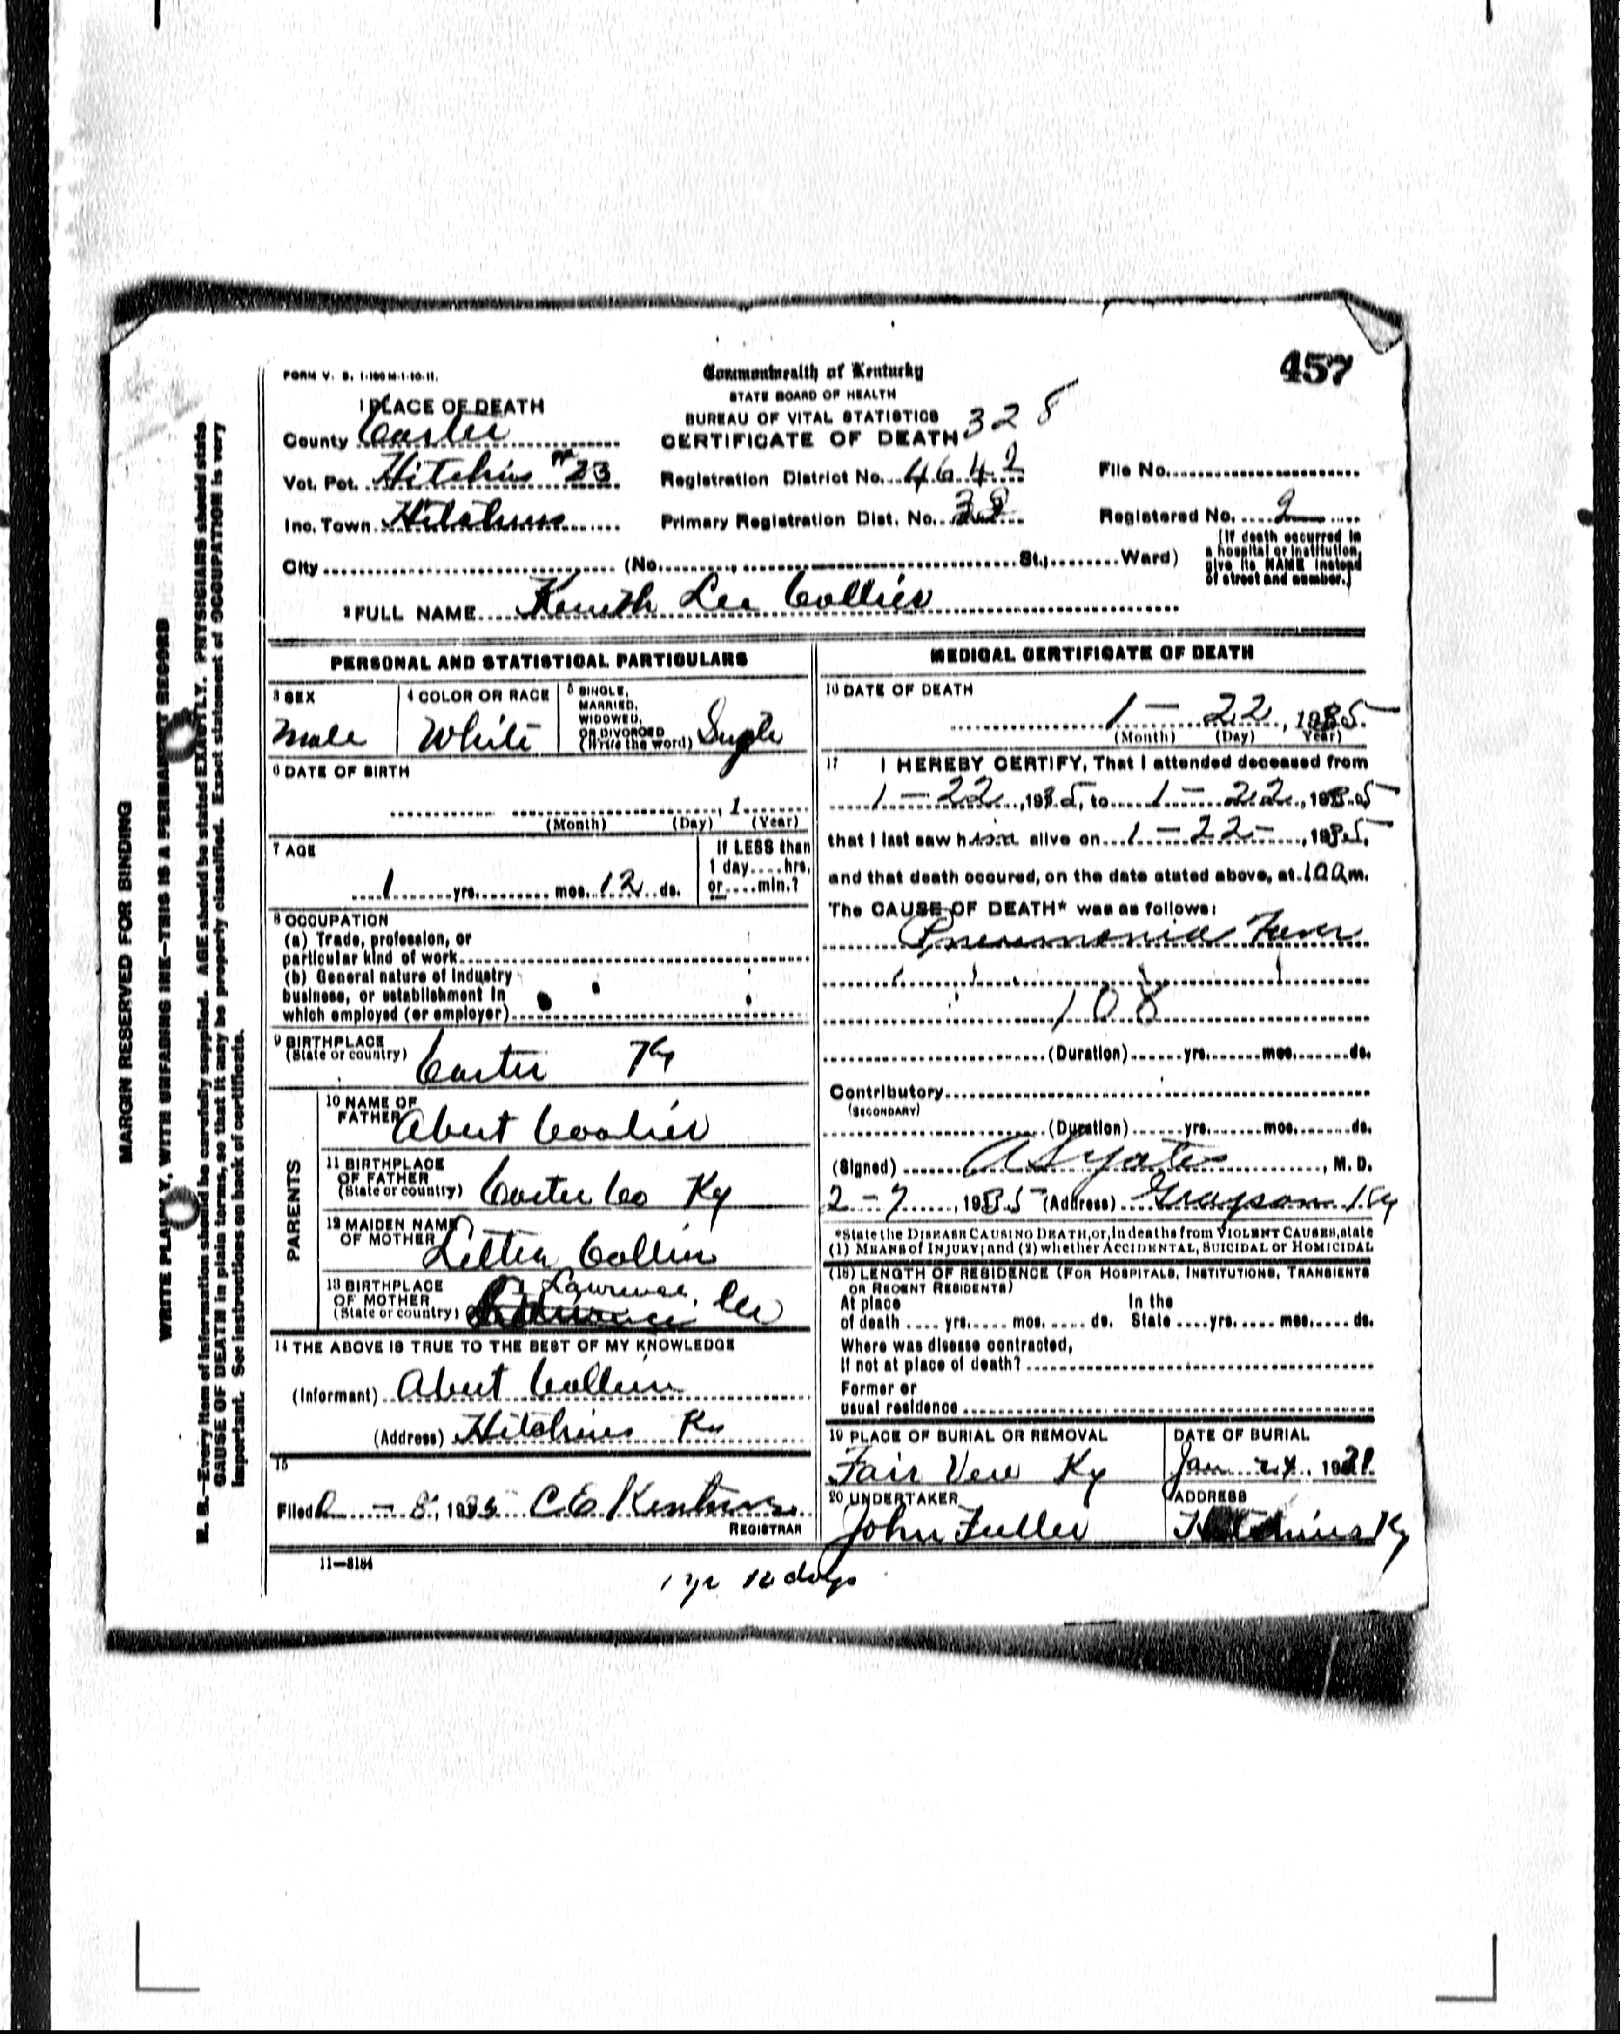 457
FORM V. S. 1-100 M-1-10-11.
Commonwealth of Kentucky
STATE BOARD OF HEALTH
BUREAU OF VITAL STATISTICS
CERTIFICATE OF DEATH 328
1 PLACE OF DEATH
County Carter
Vot. Pct. Hitchins #23
Inc. Town Hitchins
City (No. St.; Ward)
Registration District No. 4642
Primary Registration Dist. No. 38
File No.
Registered No. 2
(If death occurred in
a hospital or institution,
give its NAME instead
of street and number.)
2 FULL NAME Kenith Lee Collier
PERSONAL AND STATISTICAL PARTICULARS
3 SEX
Male
4 COLOR OR RACE
White
5 SINGLE,
MARRIED,
WIDOWED,
OR DIVORCED
(Write the word) Single
6 DATE OF BIRTH
, 1
(Month) (Day) (Year)
7 AGE
1 yrs. mos. 12 ds.
If LESS than
1 day....hrs.
or....min.?
8 OCCUPATION
(a) Trade, profession, or
particular kind of work
(b) General nature of industry
business, or establishment in
which employed (or employer)
9 BIRTHPLACE
(State or country) Carter Ky
PARENTS
10 NAME OF
FATHER Abert Coolier
11 BIRTHPLACE
OF FATHER
(State or country) Carter Co Ky
12 MAIDEN NAME
OF MOTHER Collier
13 BIRTHPLACE
OF MOTHER
(State or country) Lawrence Co
14 THE ABOVE IS TRUE TO THE BEST OF MY KNOWLEDGE
(Informant) Abert Collier
(Address) Hitchins Ky
15
Filed 8, 1935 C E
REGISTRAR
11—8184
MEDICAL CERTIFICATE OF DEATH
16 DATE OF DEATH
1 - 22, 1935
(Month) (Day) Year)
17 I HEREBY CERTIFY, That I attended deceased from
1 - 22, 1935, to 1 - 22, 1935
that I last saw him alive on 1 - 22 -, 1935,
and that death occured, on the date stated above, at m.
The CAUSE OF DEATH* was as follows:
Pneumonia Fever
108
(Duration) yrs. mos. ds.
Contributory
(SECONDARY)
(Duration) yrs. mos. ds.
(Signed) A S Yates, M. D.
2 - 7, 1935 (Address) Grayson Ky
*State the DISEASE CAUSING DEATH, or, in deaths from VIOLENT CAUSES, state
(1) MEANS of INJURY; and (2) whether ACCIDENTAL, SUICIDAL or HOMICIDAL
(18) LENGTH OF RESIDENCE (FOR HOSPITALS, INSTITUTIONS, TRANSIENTS
OR RECENT RESIDENTS)
At place In the
of death .... yrs. .... mos. .... ds. State .... yrs. .... mos. .... ds.
Where was disease contracted,
If not at place of death?
Former or
usual residence
19 PLACE OF BURIAL OR REMOVAL
Fair View Ky
DATE OF BURIAL
Jan 24, 19
20 UNDERTAKER
John Fuller
ADDRESS
Hitchins Ky
1 yr 12 days
MARGIN RESERVED FOR BINDING
WRITE PLAINLY, WITH UNFADING INK—THIS IS A PERMANENT RECORD
N. B.—Every item of information should be carefully supplied. AGE should be stated EXACTLY. PHYSICIANS should state
CAUSE OF DEATH in plain terms, so that it may be properly classified. Exact statement of OCCUPATION is very
important. See instructions on back of certificate.